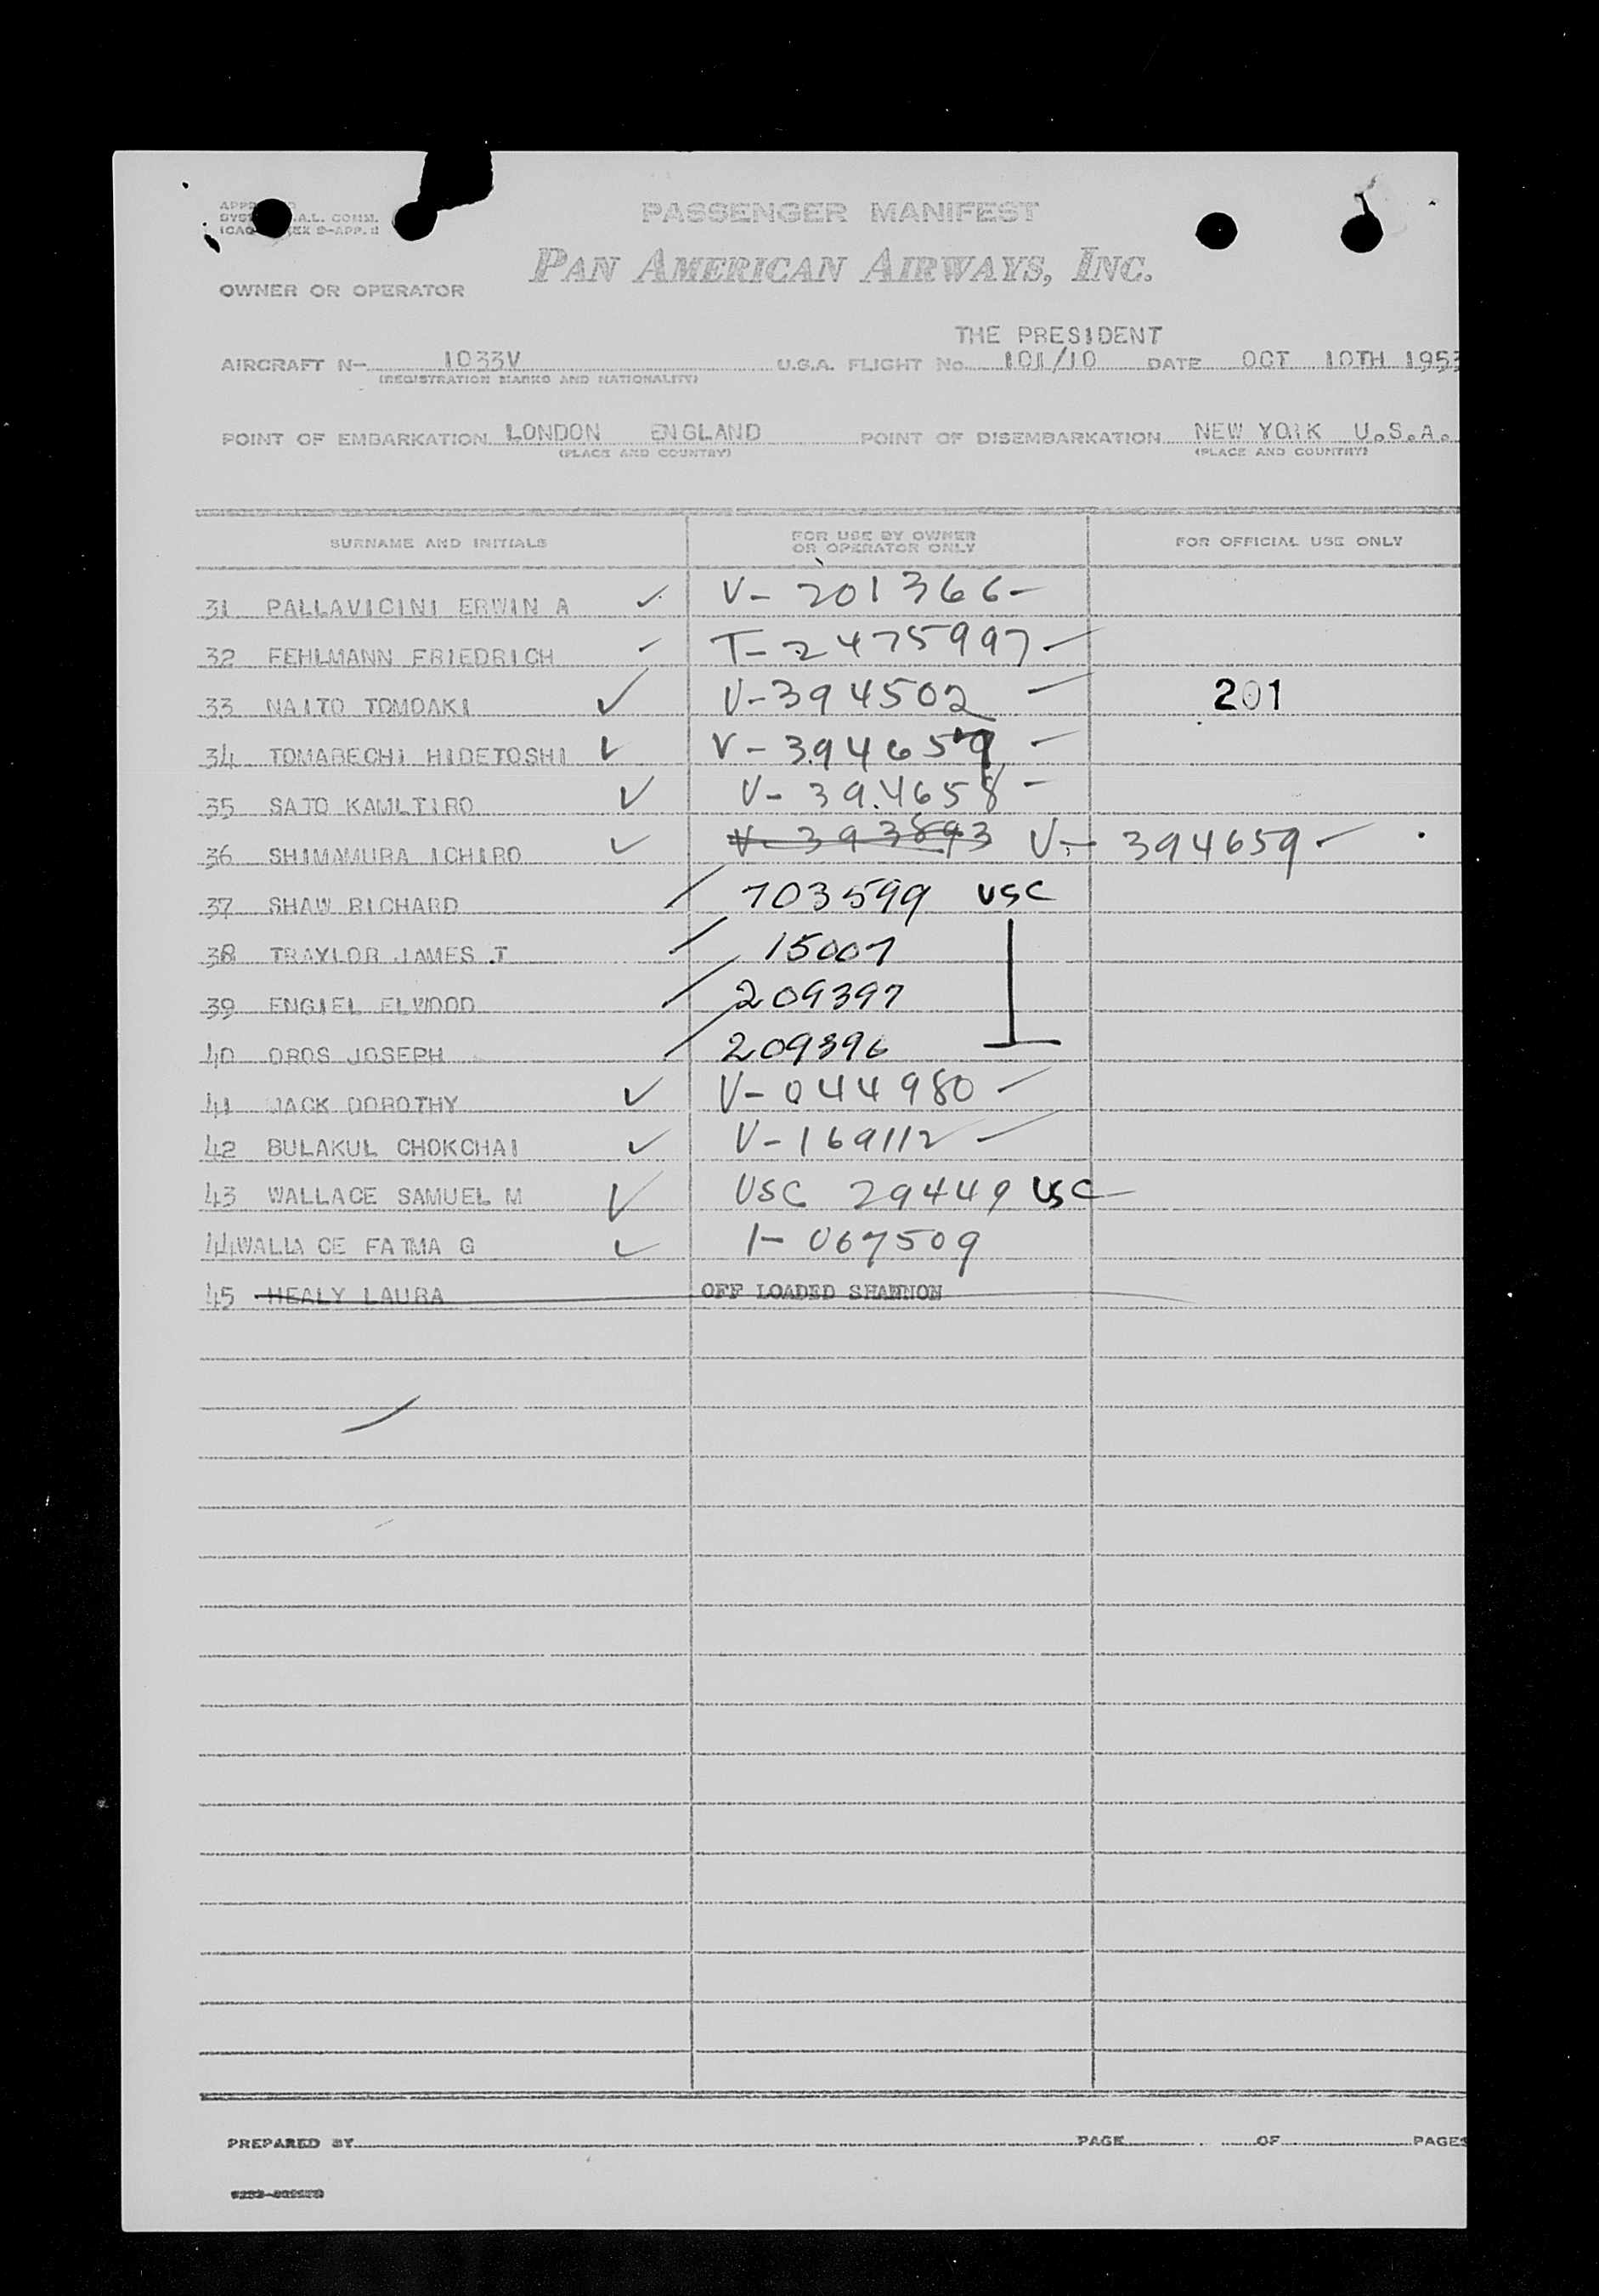 PASSENGER MANIFEST
PAN AMERICAN AIRWAYS, INC.
OWNER OR OPERATOR
THE PRESIDENT
AIRCRAFT N- 1033V U.S.A. FLIGHT No. 101/10 DATE OCT 10TH 1953
(REGISTRATION MARKS AND NATIONALITY)
POINT OF EMBARKATION LONDON ENGLAND POINT OF DISEMBARKATION NEW YORK U.S.A.
(PLACE AND COUNTRY) (PLACE AND COUNTRY)
SURNAME AND INITIALS FOR USE BY OWNER OR OPERATOR ONLY FOR OFFICIAL USE ONLY
31 PALLAVICINI ERWIN A ✓ V- 201366-
32 FEHLMANN FRIEDRICH T-2475997-
33 NAITO TOMOAKI ✓ V-394502 - 201
34 TOMABECHI HIDETOSHI ✓ V-394657 -
35 SATO KAMLTIRO ✓ V-394658 -
36 SHIMAMURA ICHIRO ✓ V-393893 V-394659 -
37 SHAW RICHARD / 703599 USC
38 TRAYLOR JAMES T / 15007
39 ENGIEL ELWOOD / 209397
40 OROS JOSEPH / 209396
41 JACK DOROTHY ✓ V-044980 -
42 BULAKUL CHOKCHAI ✓ V-169112 -
43 WALLACE SAMUEL M ✓ USC 29449 USC
44 WALLA CE FATMA G ✓ I-067509
45 HEALY LAURA OFF LOADED SHANNON
PREPARED BY PAGE OF PAGES